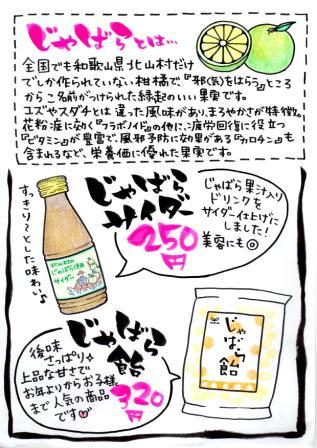 じゃばらとは…
全国でも和歌山県北山村だけ
でしか作られていない柑橘で、『邪気をはらう』ところ
からこ名前がつけられた縁起のいい果実です。
ユズやスダチとは違った風味があり、まろやかさが特徴。
花粉症に効く『フラボノイド』の他に、疲労回復に役立つ
『ビタミン』が豊富で、風邪予防に効果がある『カロチン』も
含まれるなど、栄養価に優れた果実です。
じゃばら
サイダー
250円
すっきり〜とした味わい♪
じゃばら果汁入り
ドリンクを
サイダー仕上げに
しました!
美容にも◎
じゃばら使用
サイダー
じゃばら
飴
320円
後味
さっぱり
上品な甘さで
お年よりからお子様
まで人気の商品
です
じゃばら飴